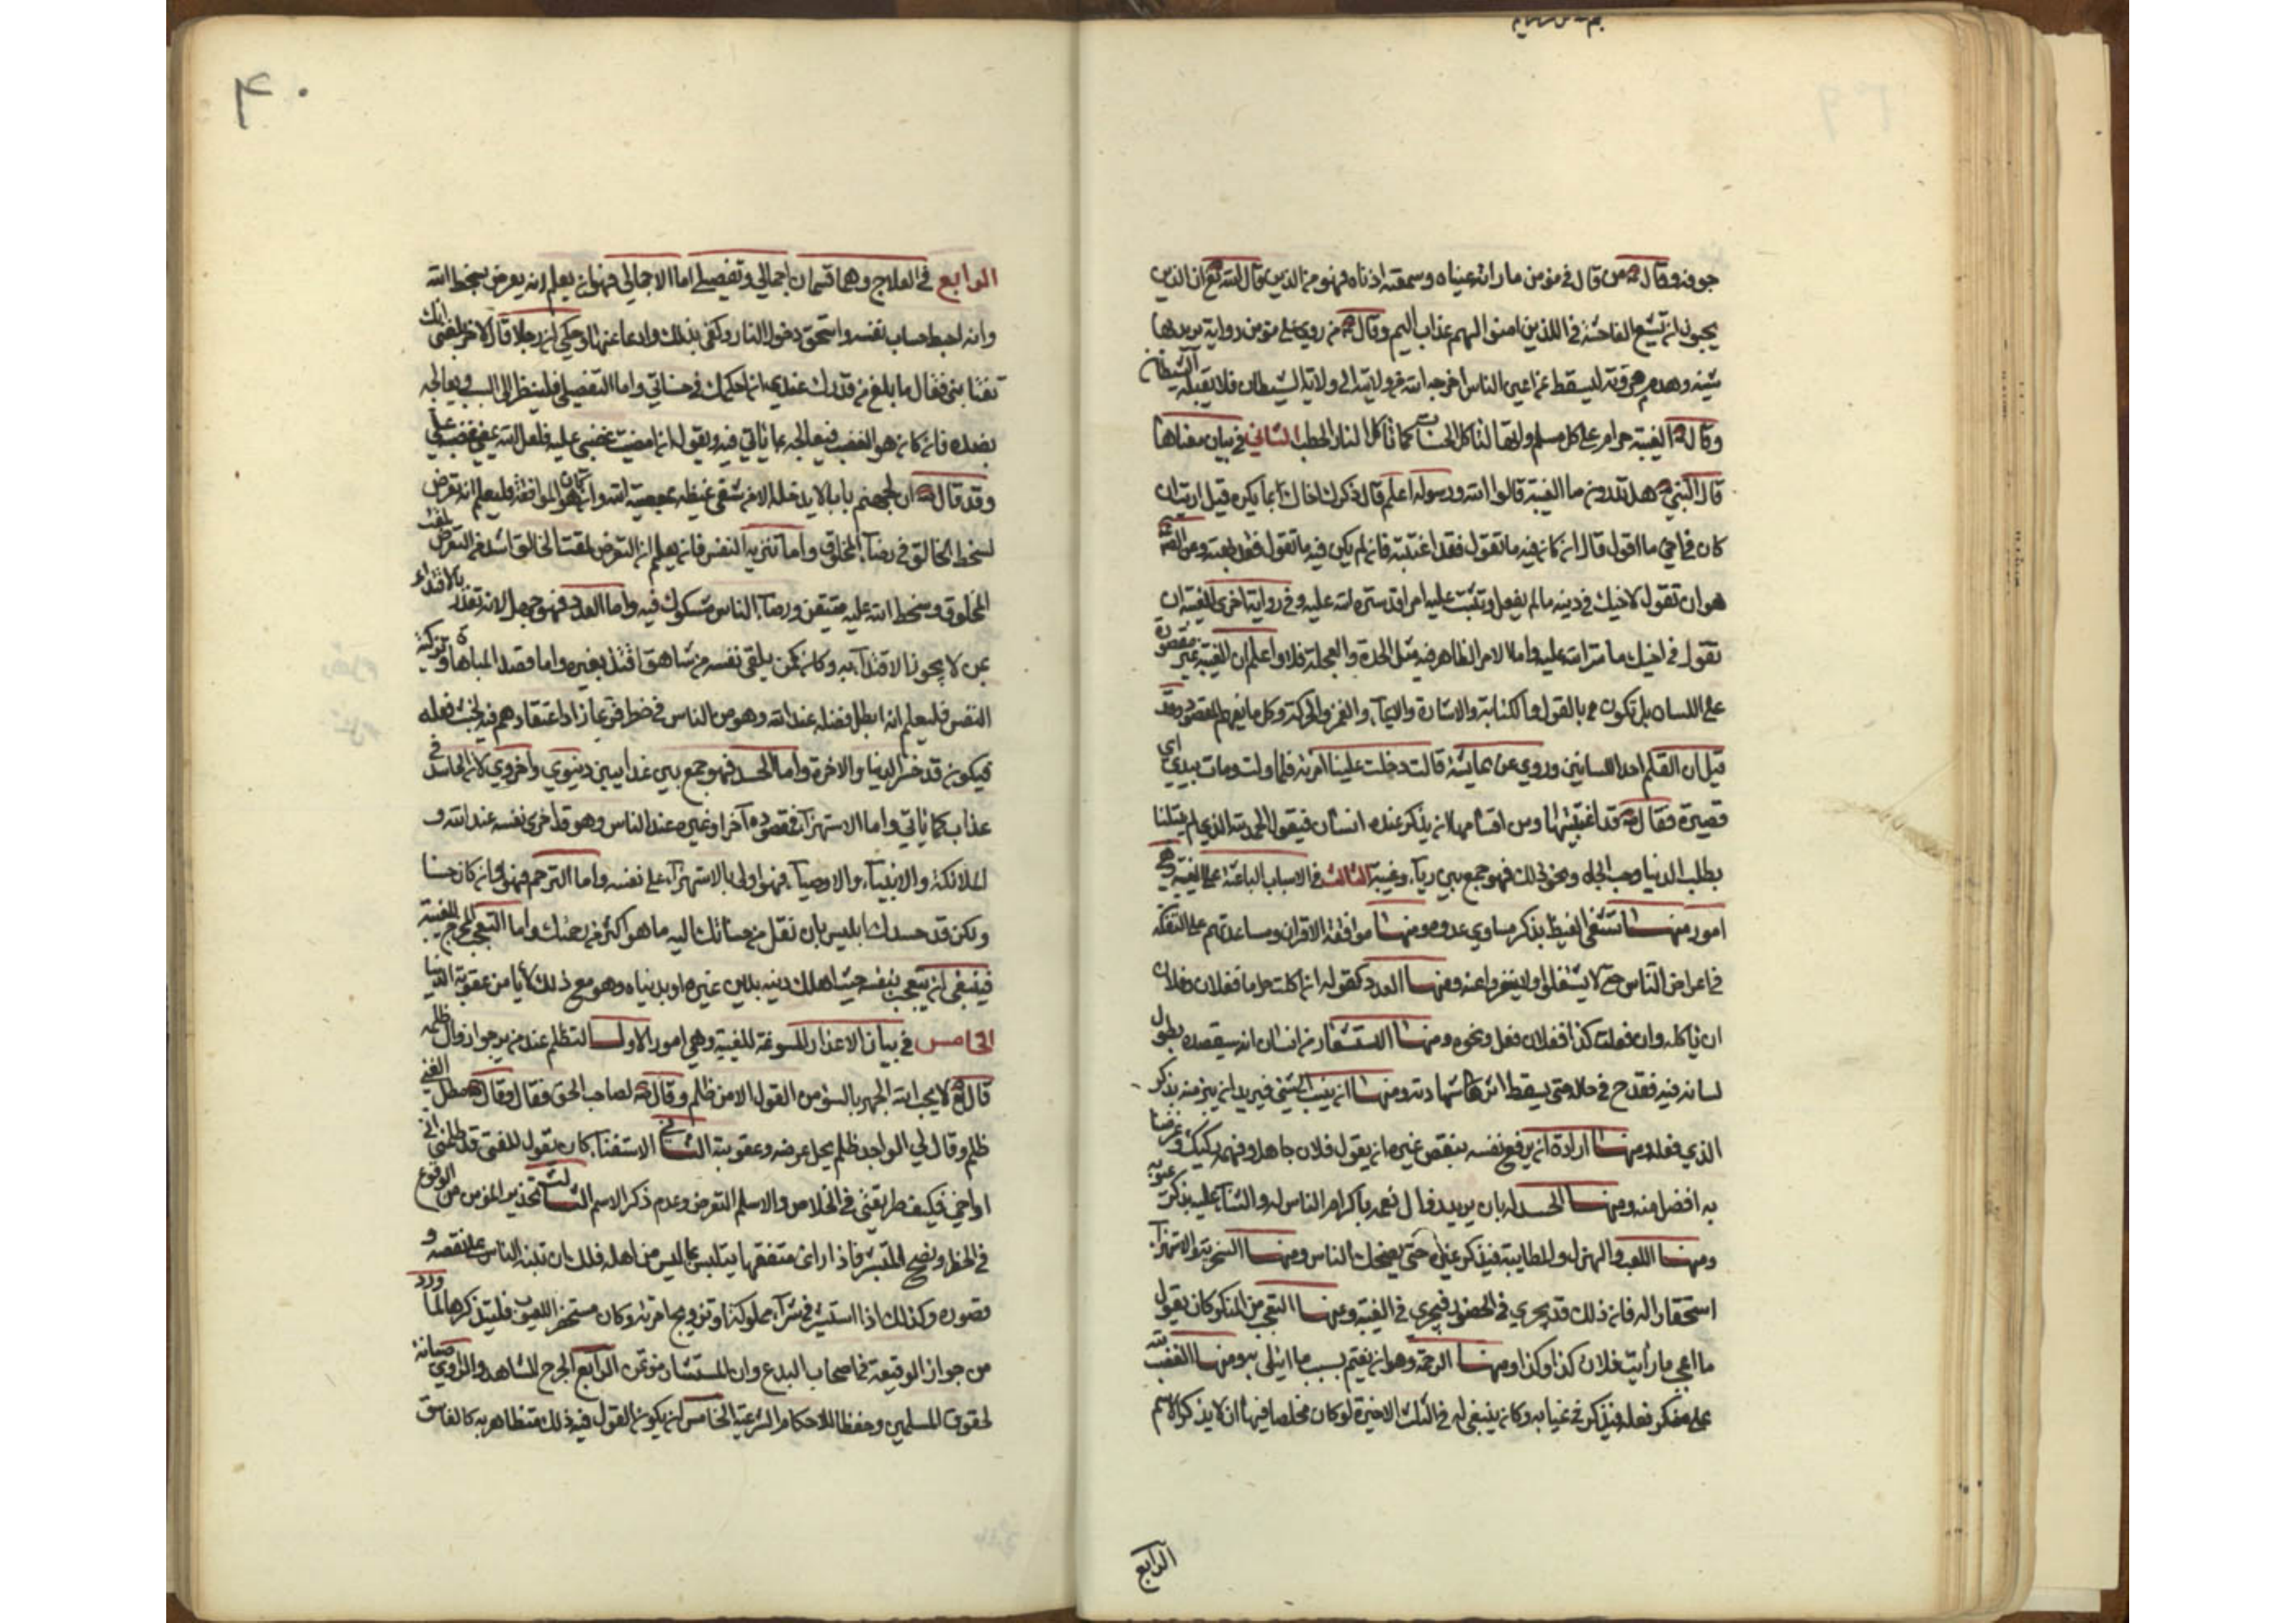 جوفه وقال ص من قال في مؤمن ما راته عيناه وسمعته اذناه فهو من الذين قال الله تع ان الذين
يحبون ان تشيع الفاحشة في اللذين امنوا لهم عذاب اليم وقال ص من روي على مؤمن رواية يريد بها
شينه وهدم مروته ليسقط من اعين الناس اخرجه الله من ولايته الى ولاية الشيطان فلا يقبله الشيطان
وقال ص الغيبة حرام على كل مسلم وانها لتاكل الحسنات كما تاكل النار الحطب الثاني في بيان معناها
قال النبي ص هل تدرون ما الغيبة قالوا الله ورسوله اعلم قال ذكرك اخاك بما يكره قيل ارايت ان
كان في اخي ما اقول قال ان كان فيه ما تقول فقد اغتبته فان لم يكن فيه ما تقول فقد بهته وعن الغيبة
هو ان تقول لاخيك في دينه ما لم يفعل وتثبت عليه امرا قد ستره الله عليه وفي رواية اخرى الغيبة ان
تقول في اخيك ما ستر الله عليه واما الامر الظاهر فيه مثل الحدة والعجلة فلا واعلم ان الغيبة غير مقصورة
على اللسان بل تكون بالقول والكتابة والاشارة والايماء والغمز والحركة وكل ما يفهم المقصود وقد
قيل ان القلم احد اللسانين وروي عن عايشة قالت دخلت علينا امرئة فلما ولت ومات بيدي اي
قصيرة فقال ص قد اغتبتها ومن اقسامها لان يذكر عنده انسان فيقول الحمد لله الذي لم يبتلنا
بطلب الدنيا وحب الجاه ونحو ذلك فهو جمع بين رياء وغيبة الثالث في الاسباب الباعثة على الغيبة وهي
امور منها تشفي الغيظ بذكر مساوي عدوه ومنها موافقة الاقران ومساعدتهم على التفكه
في اعراض الناس حتى لا يستقلوا ولا ينفروا عنه ومنها العدد كقوله ان اكلت حراما ففلان وفلان
ان ياكله وان فعلت كذا ففلان فعل ونحوه ومنها الاستشعار من انسان انه سيقصده بطول
لسانه فيه فقدح في حاله حتى يسقط اثر شهادته ومنها ان ينسب الى شيء فيريد ان يبرء منه بذكر
الذي فعله ومنها ارادة ان يرفع نفسه بنقص غيره ان يقول فلان جاهل وفهمه ركيك وغرضا
به افضل منه ومنها الحسد له بان يريد زوال نعمه باكرام الناس له والثناء عليه بذكر عيوبه
ومنها اللعب والهزل والمطايبة فيذكر غيره حتى يضحك الناس ومنها السخرية والاستهزاء
استحقارا له فان ذلك قد يجري في الحضور فيجري في الغيبة ومنها التعجب من المنكر كان يقول
ما اعجب ما رأيت فلان كذا وكذا ومنها الرحمة وهو ان يغتم بسبب ما ابتلى به ومنها الغضب لله
على منكر فعله فيذكر في غيابه وكان ينبغي له في الثلث الاخيرة لو كان مخلصا فيها ان لا يذكر الاسم
الرابع
٤٠
الرابع في العلاج وهما قسمان اجمالي وتفصيلي اما الاجمالي فهو ان يعلم انه يعرض بسخط الله
وانه احبط حساب نفسه واستحق دخول النار وكفى بذلك وادعا عنها وحكي ان رجلا قال لاخر بلغني انك
تغتابني فقال ما بلغ من قدرك عندي اني احكمك في حسناتي واما التفصيلي فلينظر الى السبب ويعالجه
بضده فان كان هو الغضب فيعالجه بما ياتي فيه ويقول ان امضيت غضبي عليه فلعل الله يمضي غضبه علي
وقد قال ص ان لجهنم باب لا يدخله الا من شفى غيظه بمعصية الله وان كان هو الموافقة فليعلم انه تعرض
لسخط الخالق في رضاء المخلوق واما تنزيه النفس فان يعلم ان التعرض لمقت الخالق اشد من التعرض لمقت
المخلوق وسخط الله عليه متيقن ورضاء الناس مشكوك فيه واما العدد فهو جهل لانه تعذر بالاقتداء
بمن لا يجوز الاقتداء به وكان كمن يلقي نفسه من شاهق اقتداء بغيره واما قصد المباهاة وتزكية
النفس فليعلم انه ابطل فضله عند الله وهو من الناس في خطر فربما زاد اعتقادهم فيه لخبث فعله
فيكون قد خسر الدنيا والاخرة واما الحسد فهو جمع بين عذابين دنيوي واخروي لان الحاسد في
عذاب كما ياتي واما الاستهزاء فمقصوده اخزاء غيره عند الناس وهو قد اخزى نفسه عند الله و
الملائكة والانبياء والاوصياء فهو اولى بالاستهزاء على نفسه واما الترحم فهو وان كان حسنا
ولكن قد حسدك ابليس بان نقل من حسناتك اليه ما هو اكثر من رحمتك واما التعجب المخرج للغيبة
فينبغي ان يتعجب بنفسه حيث اهلك دينه بدين غيره او بدنياه وهو مع ذلك لا يامن عقوبة الدنيا
الخامس في بيان الاعذار المسوغة للغيبة وهي امور الاول التظلم عند من يرجو ازوال ظلمه
قال تع لا يحب الله الجهر بالسوء من القول الا من ظلم وقال ص لصاحب الحق فقال وقال ص مطل الغني
ظلم وقال لي الواجد ظلم يحل عرضه وعقوبته الثاني الاستفتاء كان يقول للمفتي قد ظلمني ابي
او اخي فكيف طريقتي في الخلاص والاسلم التعرض وعدم ذكر الاسم الثالث تحذير المؤمن من الوقوع
في الخطر ونصح المستشير فاذا راى متفقها يتلبس بما ليس من اهله فلك ان تنبه الناس على نقصه و
قصوره وكذلك اذا استشير في شراء مملوكة او تزويج امرئة وكان مستحضر العيوب فليذكرها لما ورد
من جواز الوقيعة في اصحاب البدع وان المستشار مؤتمن الرابع الجرح للشاهد والراوي صيانة
لحقوق المسلمين وحفظا للاحكام الشرعية الخامس ان يكون المقول فيه ذلك متظاهر به كالفاسق